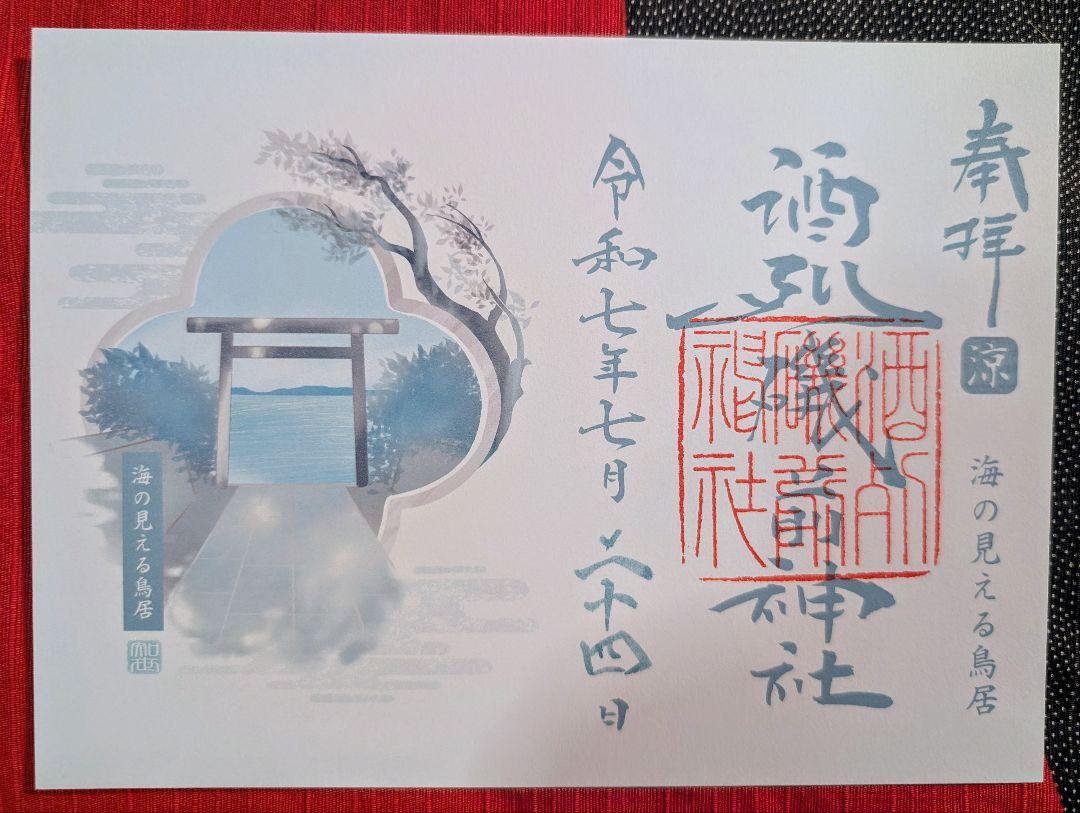 奉拝
涼
海の見える鳥居
酒列磯前神社
酒列
磯前
神社
令和七年七月二十四日
海の見える鳥居